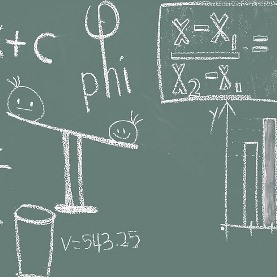 x+c
phi
x-x₁
=
x₂-x₁
y
v=543.25